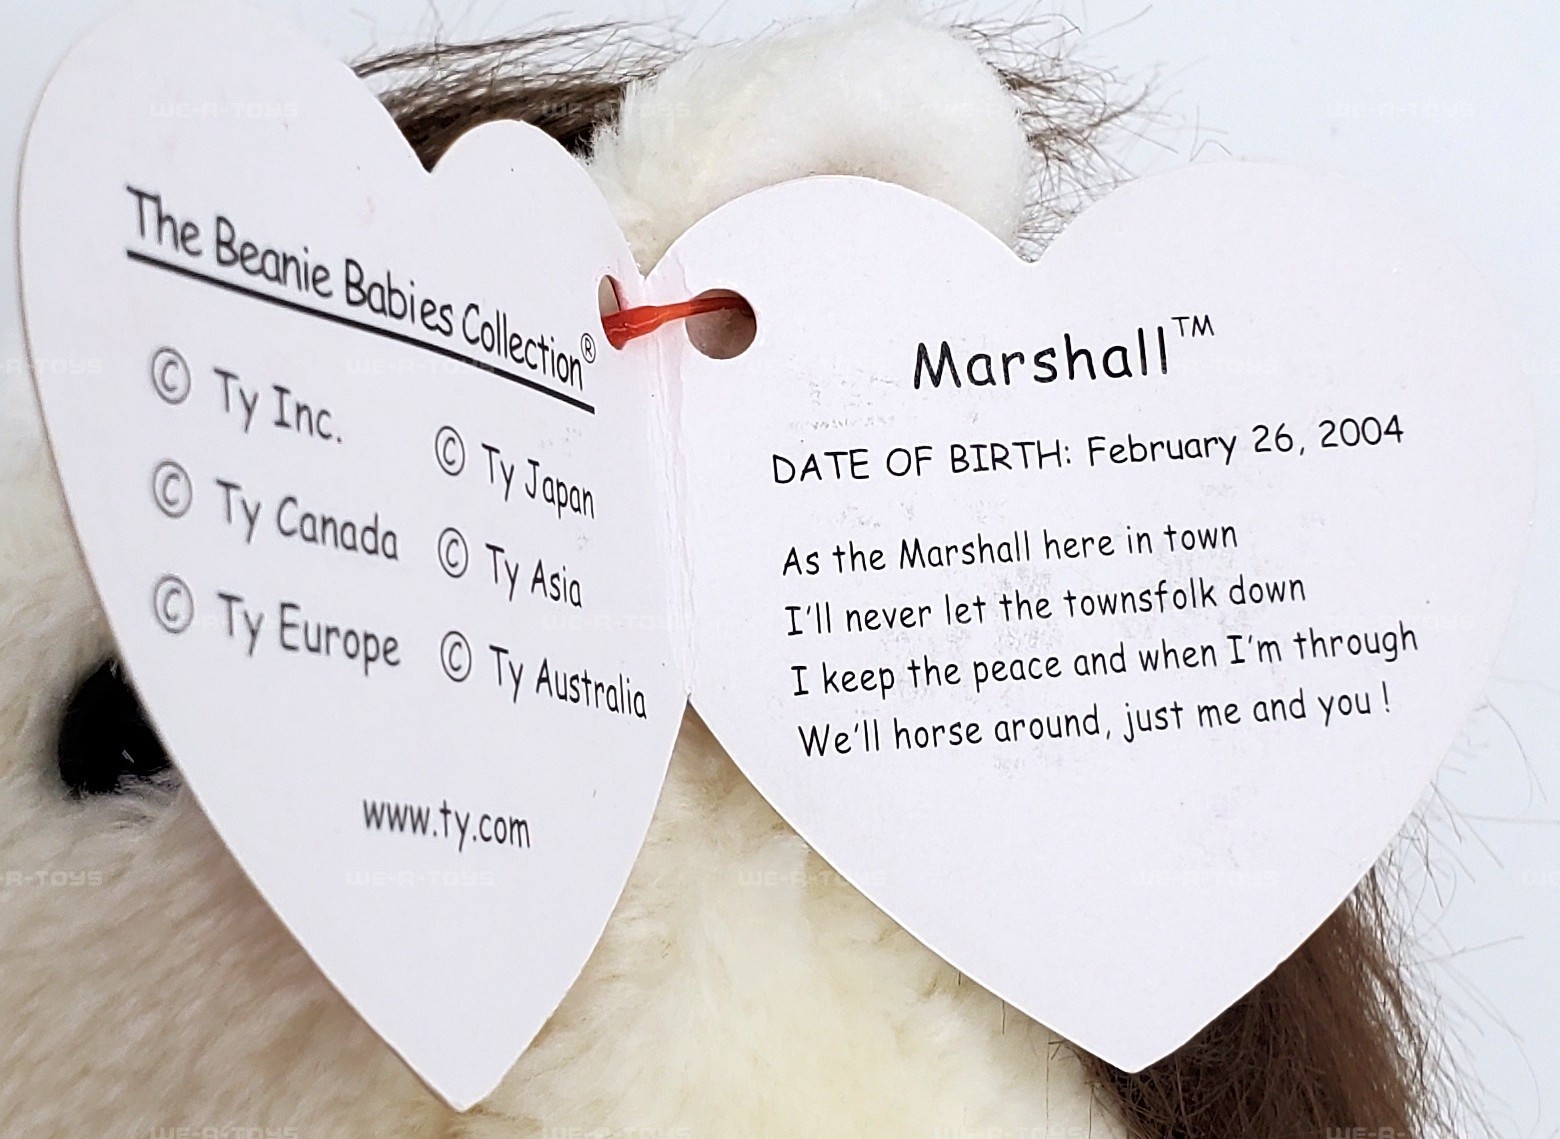 The Beanie Babies Collection®
© Ty Inc.
© Ty Canada
© Ty Europe
© Ty Japan
© Ty Asia
© Ty Australia
www.ty.com
Marshall™
DATE OF BIRTH: February 26, 2004
As the Marshall here in town
I'll never let the townsfolk down
I keep the peace and when I'm through
We'll horse around, just me and you !
WE-R-TOYS